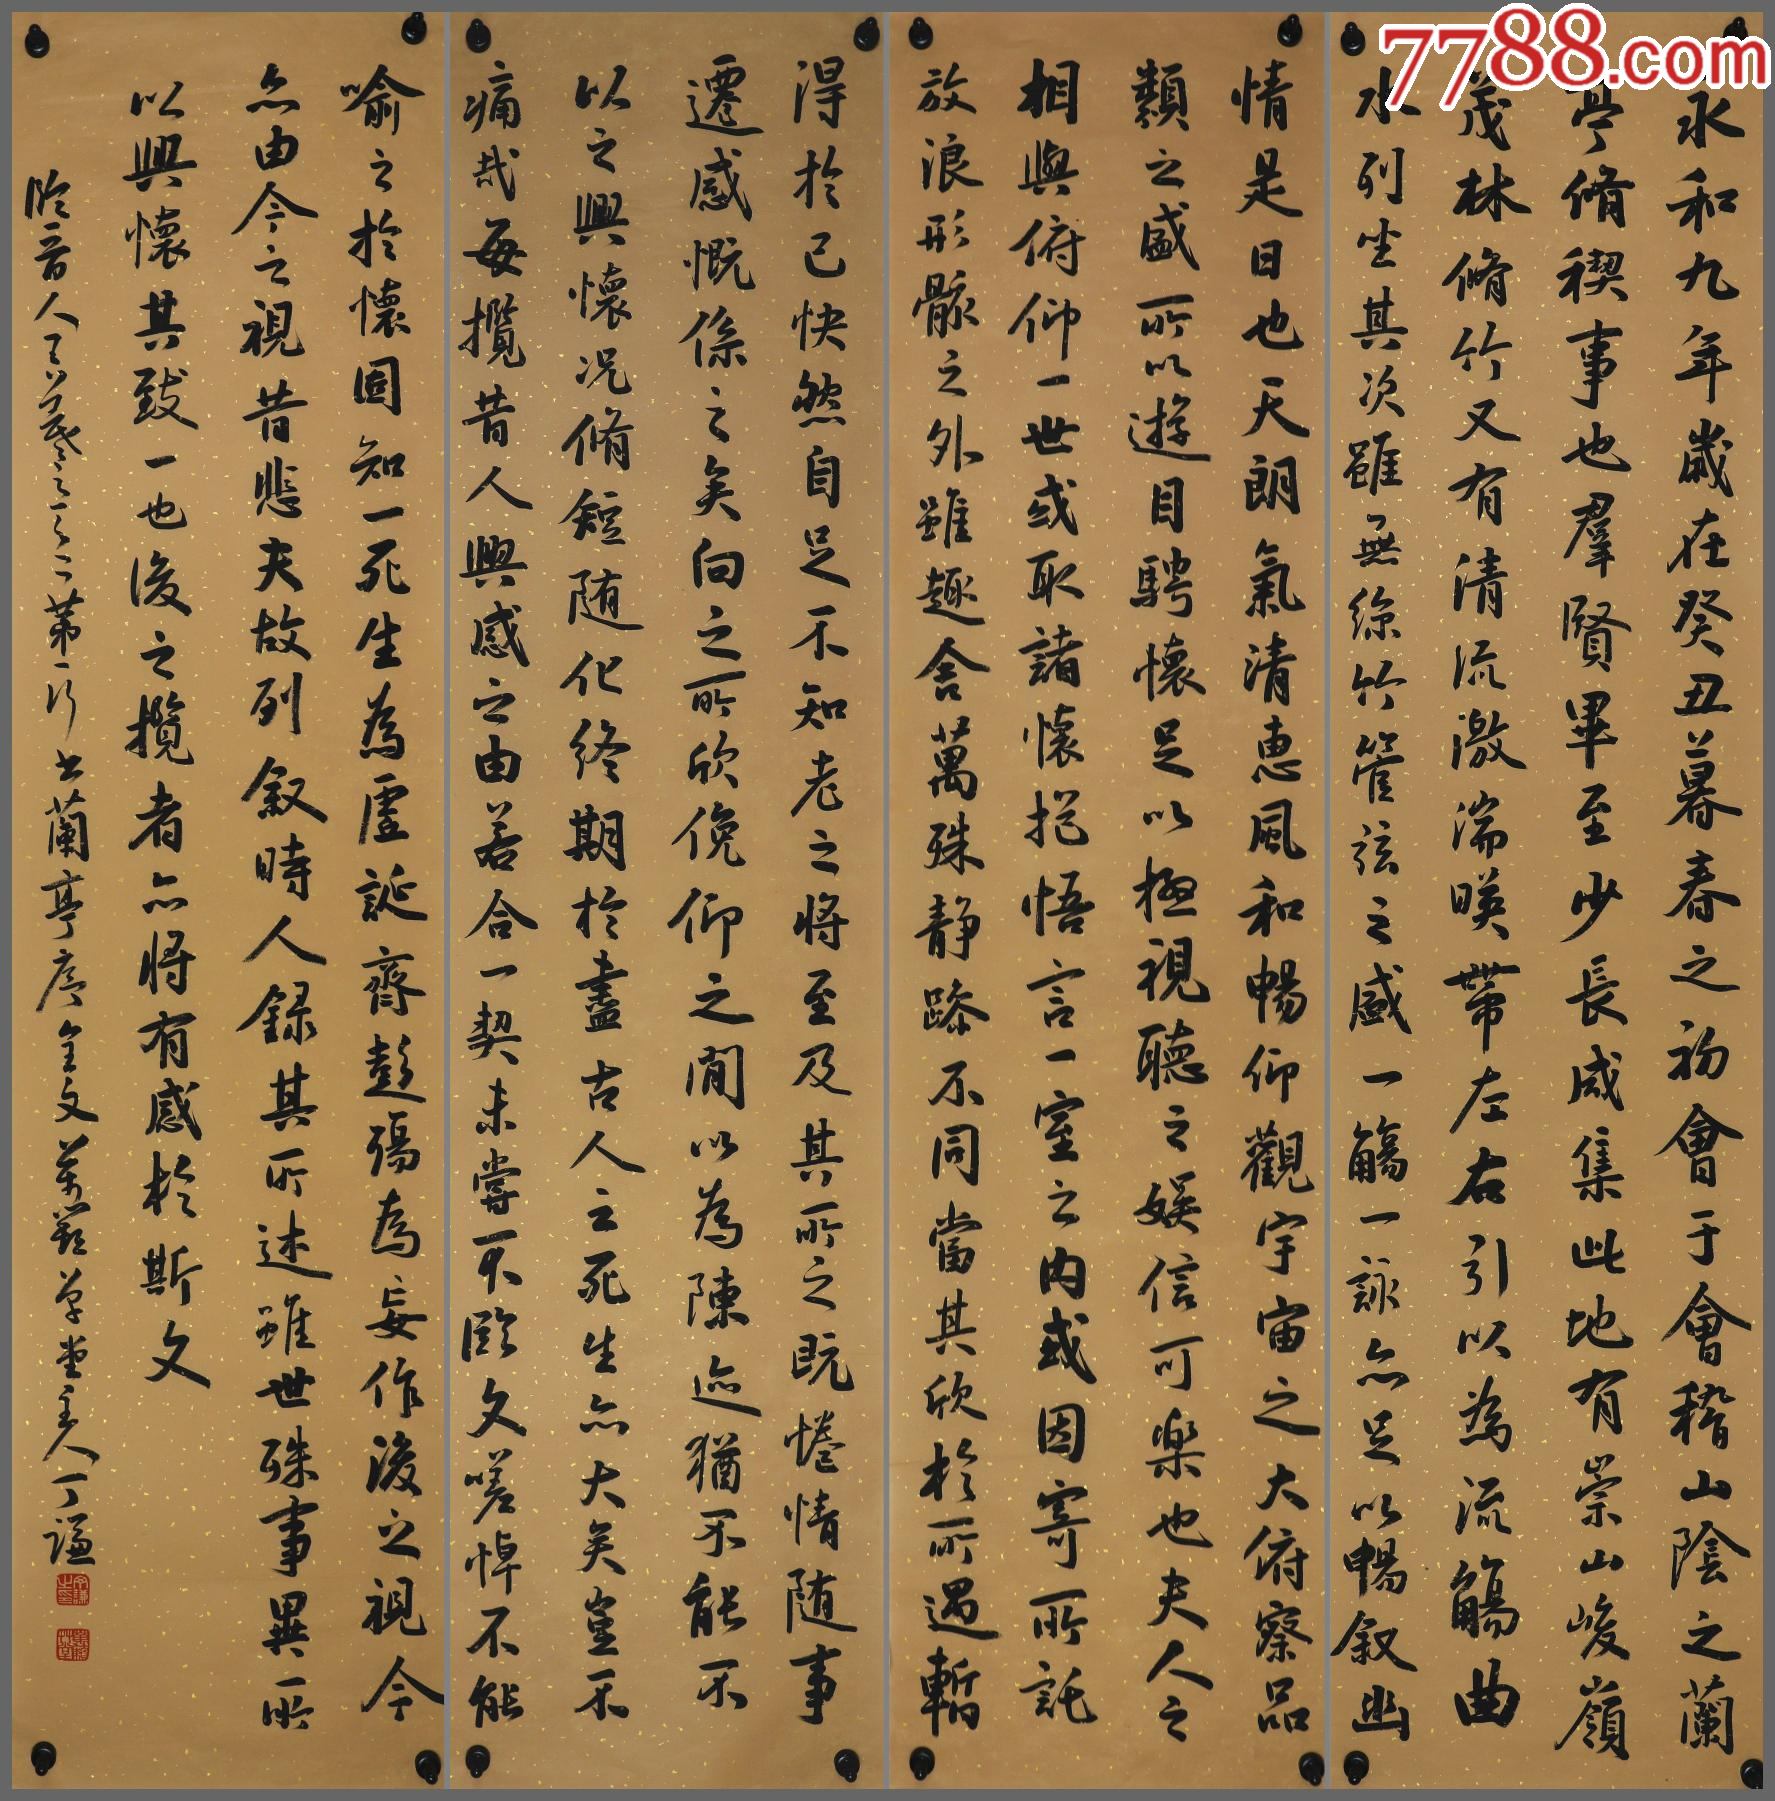 7788.com
永和九年歲在癸丑暮春之初會于會稽山陰之蘭
亭脩禊事也羣賢畢至少長咸集此地有崇山峻嶺
茂林脩竹又有清流激湍暎帶左右引以為流觴曲
水列坐其次雖無絲竹管弦之盛一觴一詠亦足以暢敘幽
情是日也天朗氣清惠風和暢仰觀宇宙之大俯察品
類之盛所以遊目騁懷足以極視聽之娛信可樂也夫人之
相與俯仰一世或取諸懷抱悟言一室之內或因寄所託
放浪形骸之外雖趣舍萬殊靜躁不同當其欣於所遇暫
得於己快然自足不知老之將至及其所之既惓情隨事
遷感慨係之矣向之所欣俛仰之間以為陳迹猶不能不
以之興懷況脩短隨化終期於盡古人云死生亦大矣豈不
痛哉每攬昔人興感之由若合一契未嘗不臨文嗟悼不能
喻之於懷固知一死生為虛誕齊彭殤為妄作後之視今
亦由今之視昔悲夫故列敘時人錄其所述雖世殊事異所
以興懷其致一也後之攬者亦將有感於斯文
臨晉人王羲之天下第一行书蘭亭序全文草堂主人丁謙